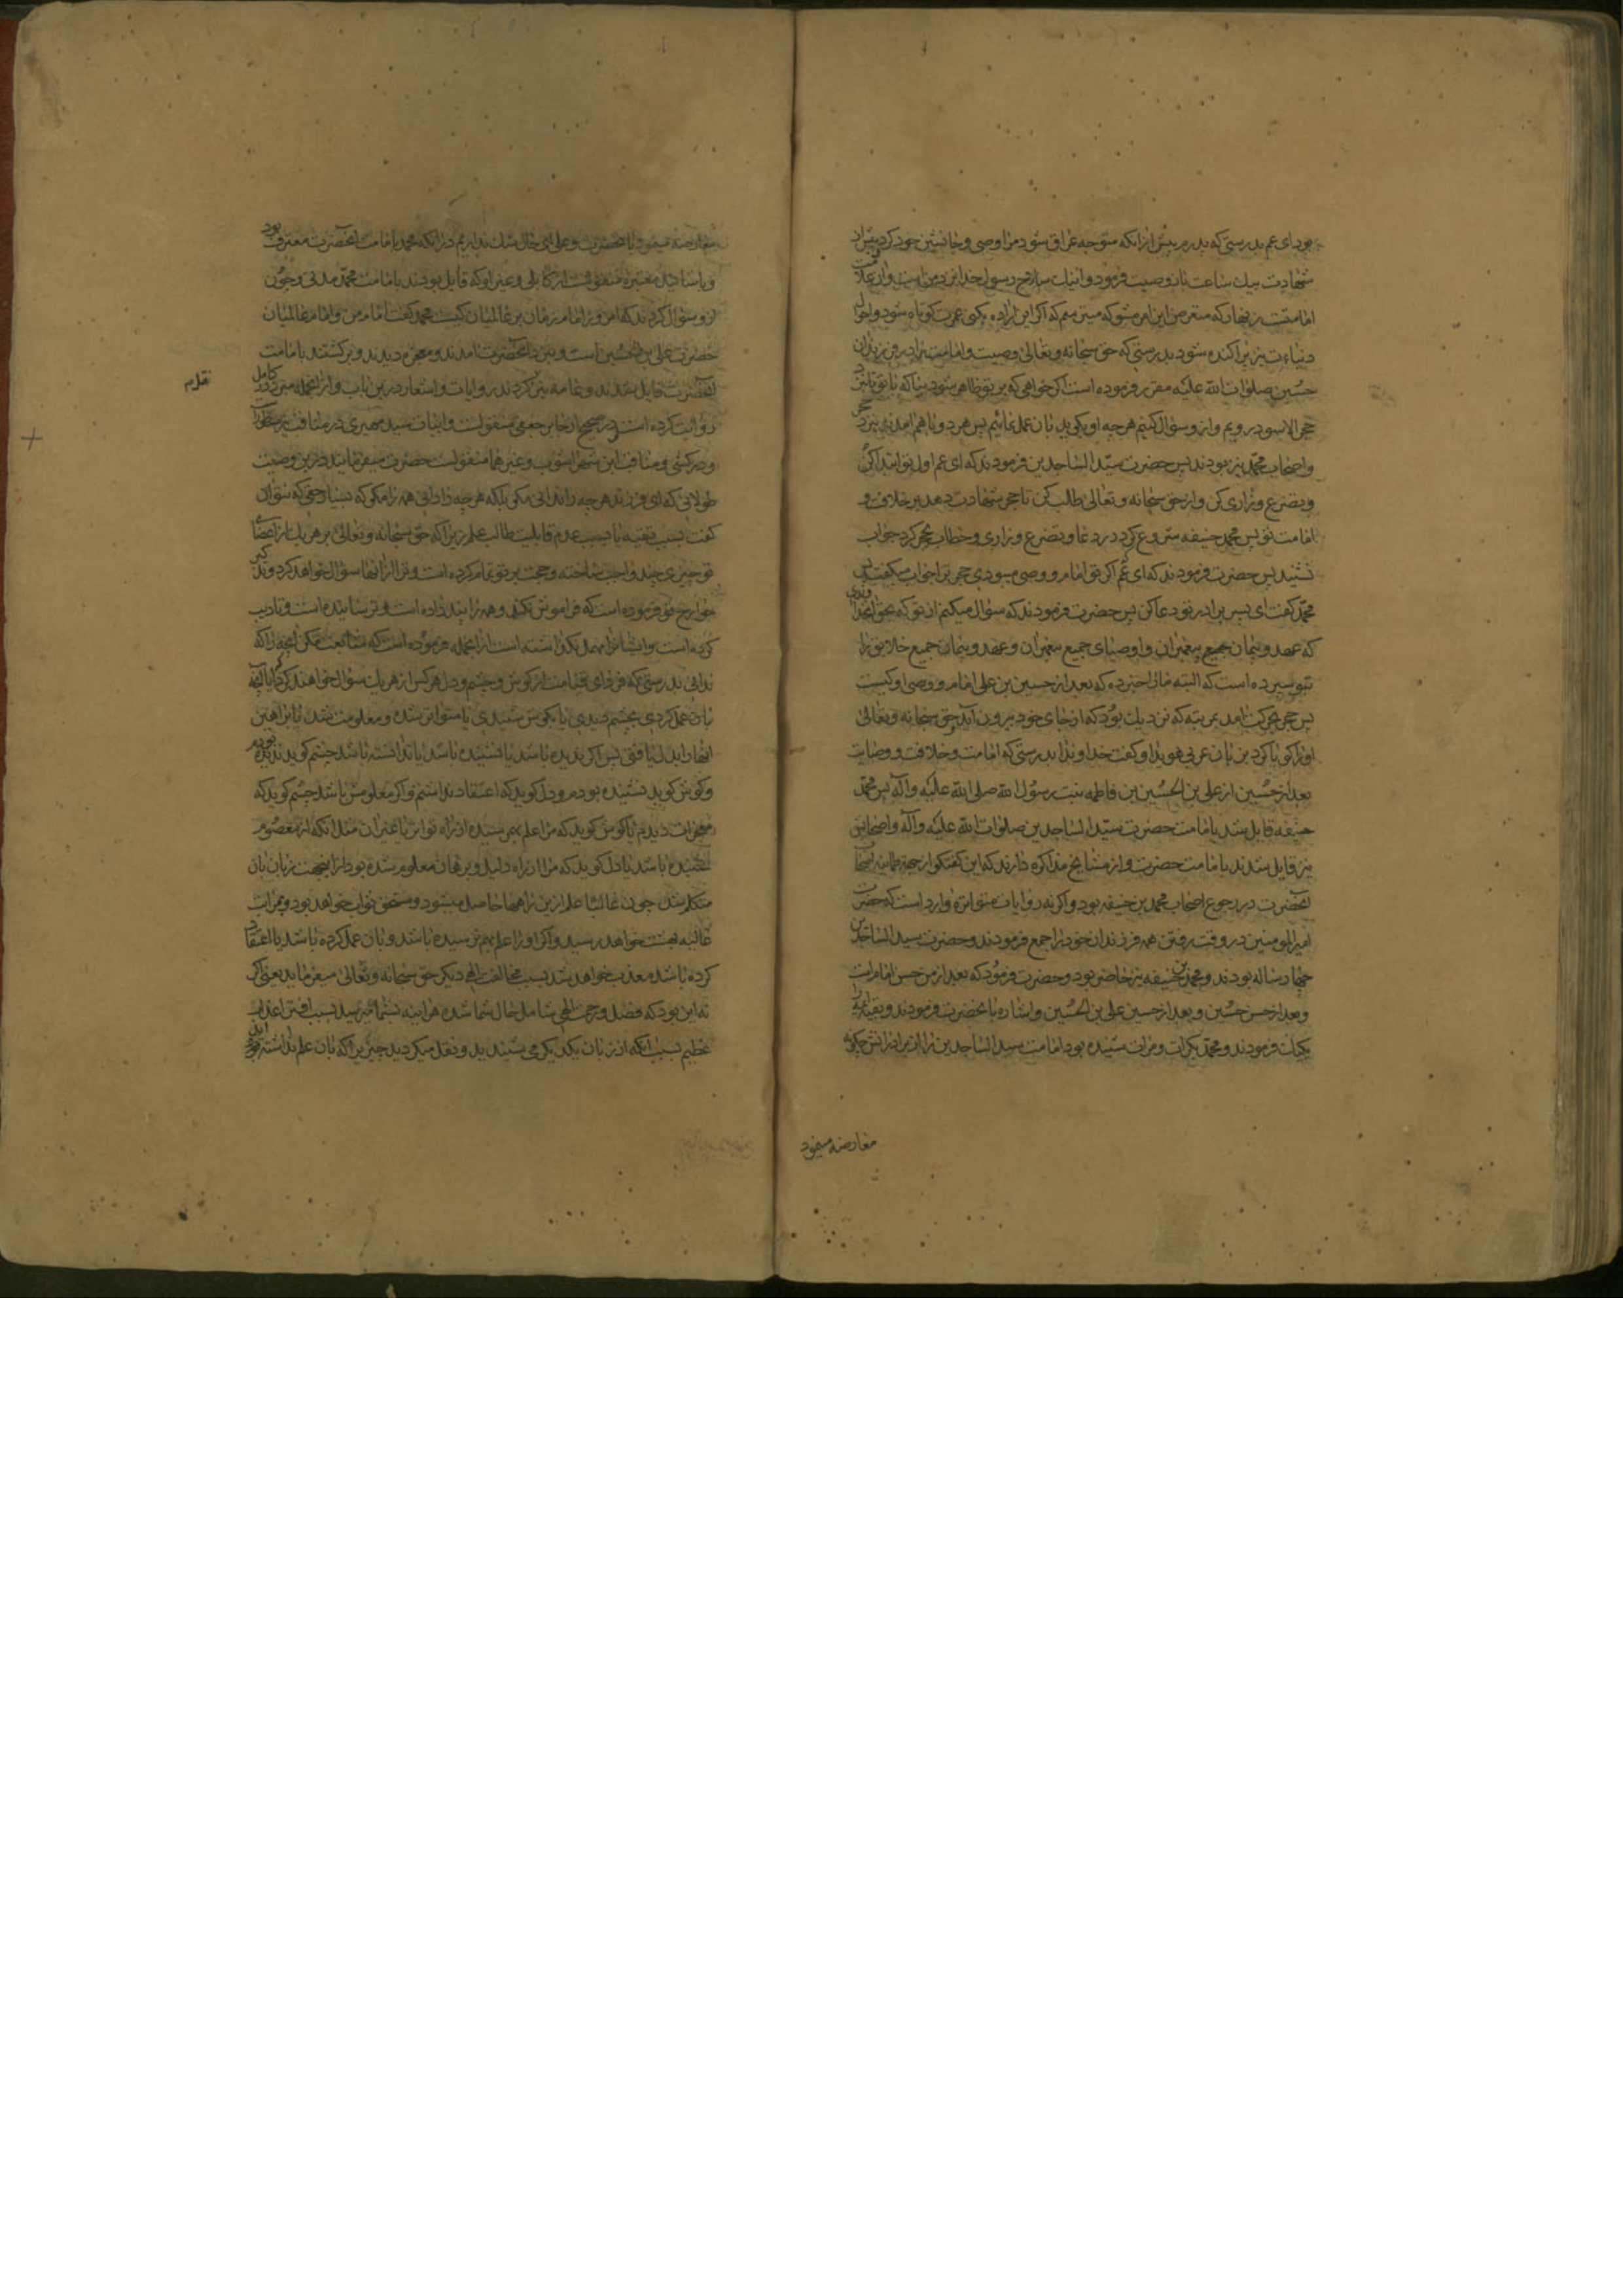 بود ای عم بدرستی که پدرم پیش از انکه متوجه عراق شود مرا وصی و جانشین خود کرد و پیش از
شهادت بیک ساعت باز وصیت فرمود و اینک سلاح رسول خدا نزد من است و ان علامت
امامتست زنهار که متعرض این امر مشو که میترسم که اکر این اراده بکنی عمرت کوتاه شود و احوال
دنیاءت نیز پراکنده شود بدرستی که حق سبحانه و تعالی وصیت و امامت را در فرزندان
حسین صلوات الله علیه مقرر فرموده است اکر خواهی که بر تو ظاهر شود بیا که با تو نزد
حجر الاسود رویم و ازو سؤال کنیم هر چه او بکوید بان عمل نمائیم پس هر دو با هم امدند نزد حجر
و اصحاب محمد نیز بودند پس حضرت سید الساجدین فرمودند که ای عم اول تو ابتدا کن
و تضرع و زاری کن و از حق سبحانه و تعالی طلب کن تا حجر شهادت دهد بر خلافت و
امامت تو پس محمد حنیفه شروع کرد در دعا و تضرع و زاری و خطاب بحجر کرد جواب
نشنید پس حضرت فرمودند که ای عم اکر تو امام و وصی میبودی حجر ترا جواب میکفت پس
محمد کفت ای پسر برادر تو دعا کن پس حضرت فرمودند که سؤال میکنم از تو که بحق انخداوندی
که عهد و پیمان جمیع پیغمبران و اوصیای جمیع پیغمبران و عهد و پیمان جمیع خلایق را
بتو سپرده است که البته ما را خبر ده که بعد از حسین بن علی امام و وصی او کیست
پس حجر بحرکت امد بمرتبه که نزدیک بود که از جای خود بیرون آید و حق سبحانه و تعالی
او را کویا کرد بزبان عربی هویدا و کفت خداوندا بدرستی که امامت و خلافت و وصایت
بعد از حسین از علی بن الحسین بن فاطمه بنت رسول الله صلی الله علیه و آله پس محمد
حنیفه قایل شد بامامت حضرت سید الساجدین صلوات الله علیه و آله و اصحابش
نیز قایل شدند بامامت حضرت و از مشایخ مذاکره دارند که این کفتکو از جهة اصحاب
آنحضرت در رجوع اصحاب محمد بن حنیفه بود و اکر نه روایات متواتره وارد است که حضرت
امیرالمومنین در وقت رفتن همه فرزندان خود را جمع فرمودند و حضرت سید الساجدین
چهار ساله بودند و محمد بن حنیفه نیز حاضر بود و حضرت فرمود که بعد از من حسن امام است
و بعد از حسن حسین و بعد از حسین علی بن الحسین و اشاره بانحضرت فرمودند و بقیه ائمه را
یک یک فرمودند و محمد بکرات و مرات شنیده بود امامت سید الساجدین را از برادرانش چکونه
معارضه مینمود
معارضه مینمود با انحضرت و علی ای حال شک نداریم در انکه محمد بامامت آنحضرت معترف بود
و باسانید معتبره منقولست از کابلی و غیر او که قایل بودند بامامت محمد مدتی و چون
ازو سؤال کردند که امروز امام زمان بر عالمیان کیست محمد کفت امام من و امام عالمیان
حضرت علی بن الحسین است و بنزد آنحضرت امدند و معجزه دیدند و برکشتند بامامت
آنحضرت قایل شدند و عامه نیز کردند روایات و اشعار درین باب و از انجمله مبرد در کامل
روایت کرده است در صحیح از جابر جعفی منقولست و ابیات سید حمیری در مناقب
و در کشی و مناقب ابن شهر اشوب و غیر هما منقولست حضرت میفرمایند درین وصیت
طولانی که ای فرزند هر چه را ندانی مکو بلکه هر چه را دانی همه را مکو که بسیار حق که نتوان
کفت بسبب تقیه یا بسبب عدم قابلیت طالب علم زیرا که حق سبحانه و تعالی بر هر یک از اعضا
تو چیزی چند واجب ساخته و حجت بر تو تمام کرده است و ترا از انها سؤال خواهد کرد و
جوارح تو فرموده است که فراموش نکند و همه را پند داده است و ترسانیده است و تادیب
کرده است و ایشانرا مهمل نکذاشته است از انجمله فرموده است که متابعت مکن انچه را که
ندانی بدرستی که فردای قیامت از کوش و چشم و دل هر کس از هر یک سؤال خواهند کرد که ایا آنچه
بان عمل کردی بچشم دیدی یا بکوش شنیدی یا متواتر شده و معلومت شد یا براهین
انها را بدل یافتی پس اکر ندیده باشد یا نشنیده باشد یا ندانسته باشد چشم کوید ندیده بودم
و کوش کوید نشنیده بودم و دل کوید که اعتقاد نداشتم و اکر معلومش باشد چشم کوید که
معجزات دیدم یا کوش کوید که مرا علم بهم رسیده از راه تواتر یا غیر ان مثل انکه از معصوم
شنیده باشد یا دل کوید که مرا از راه دلیل و برهان معلوم شده بود از اینجهت زبان بان
متکلم شد چون غالبا علم ازین راهها حاصل میشود و مستحق ثواب خواهد بود و بمراتب
عالیه بهشت خواهد رسید و اکر او را علم بهم نرسیده باشد و بان عمل کرده باشد یا اعتقاد
کرده باشد معذب خواهد شد بسبب مخالفت الهی دیکر حق سبحانه و تعالی میفرماید یعنی اکر
نه این بود که فضل و رحمت الهی شامل حال شما شده هر اینه بشما میرسید بسبب افترا عذاب
عظیم بسبب انکه از زبان یکدیکر می شنیدید و نقل میکردید چیزیرا که بان علم نداشته بودید